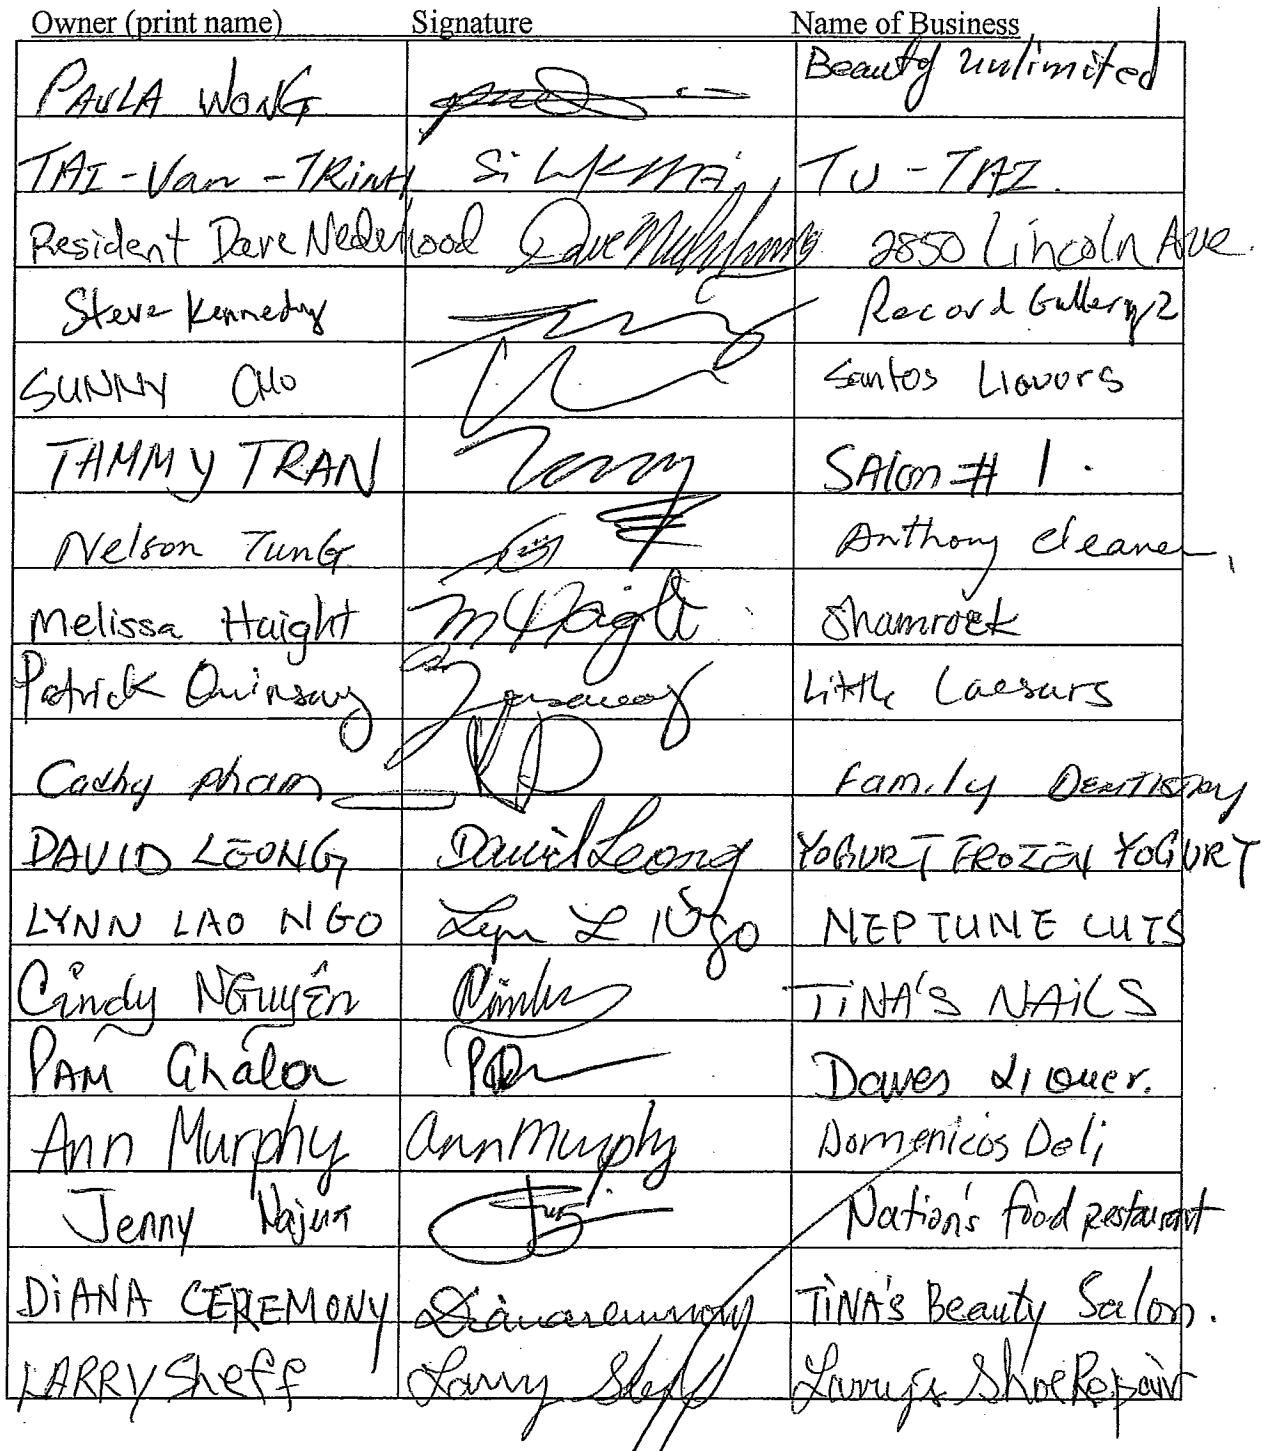 Owner (print name) Signature Name of Business
PAULA WONG Beauty unlimited
TAI-Van-TRinH TU-TAI.
Resident Dave Nederhood Dave 2850 Lincoln Ave.
Steve Kennedy Record Gallery 2
SUNNY CHO Santos Liquors
TAMMY TRAN SAlon # 1.
Nelson TunG Anthony Cleaner,
Melissa Haight M Haight Shamrock
Patrick Quinsay Little Caesars
Cathy pham Family DENTISTRY
DAVID LEONG David Leong YOGURT FROZEN YOGURT
LYNN LAO NGO Lyn L Ngo NEPTUNE CUTS
Cindy NGuyễn TiNA'S NAiLS
PAM Ghalon Dawes Liquer.
Ann Murphy Ann Murphy Domenicos Deli
Jenny Nation's food restaurant
DiANA CEREMONY TiNA's Beauty Salon.
LARRY Sheff Larry Sheff Larry's Shoe Repair